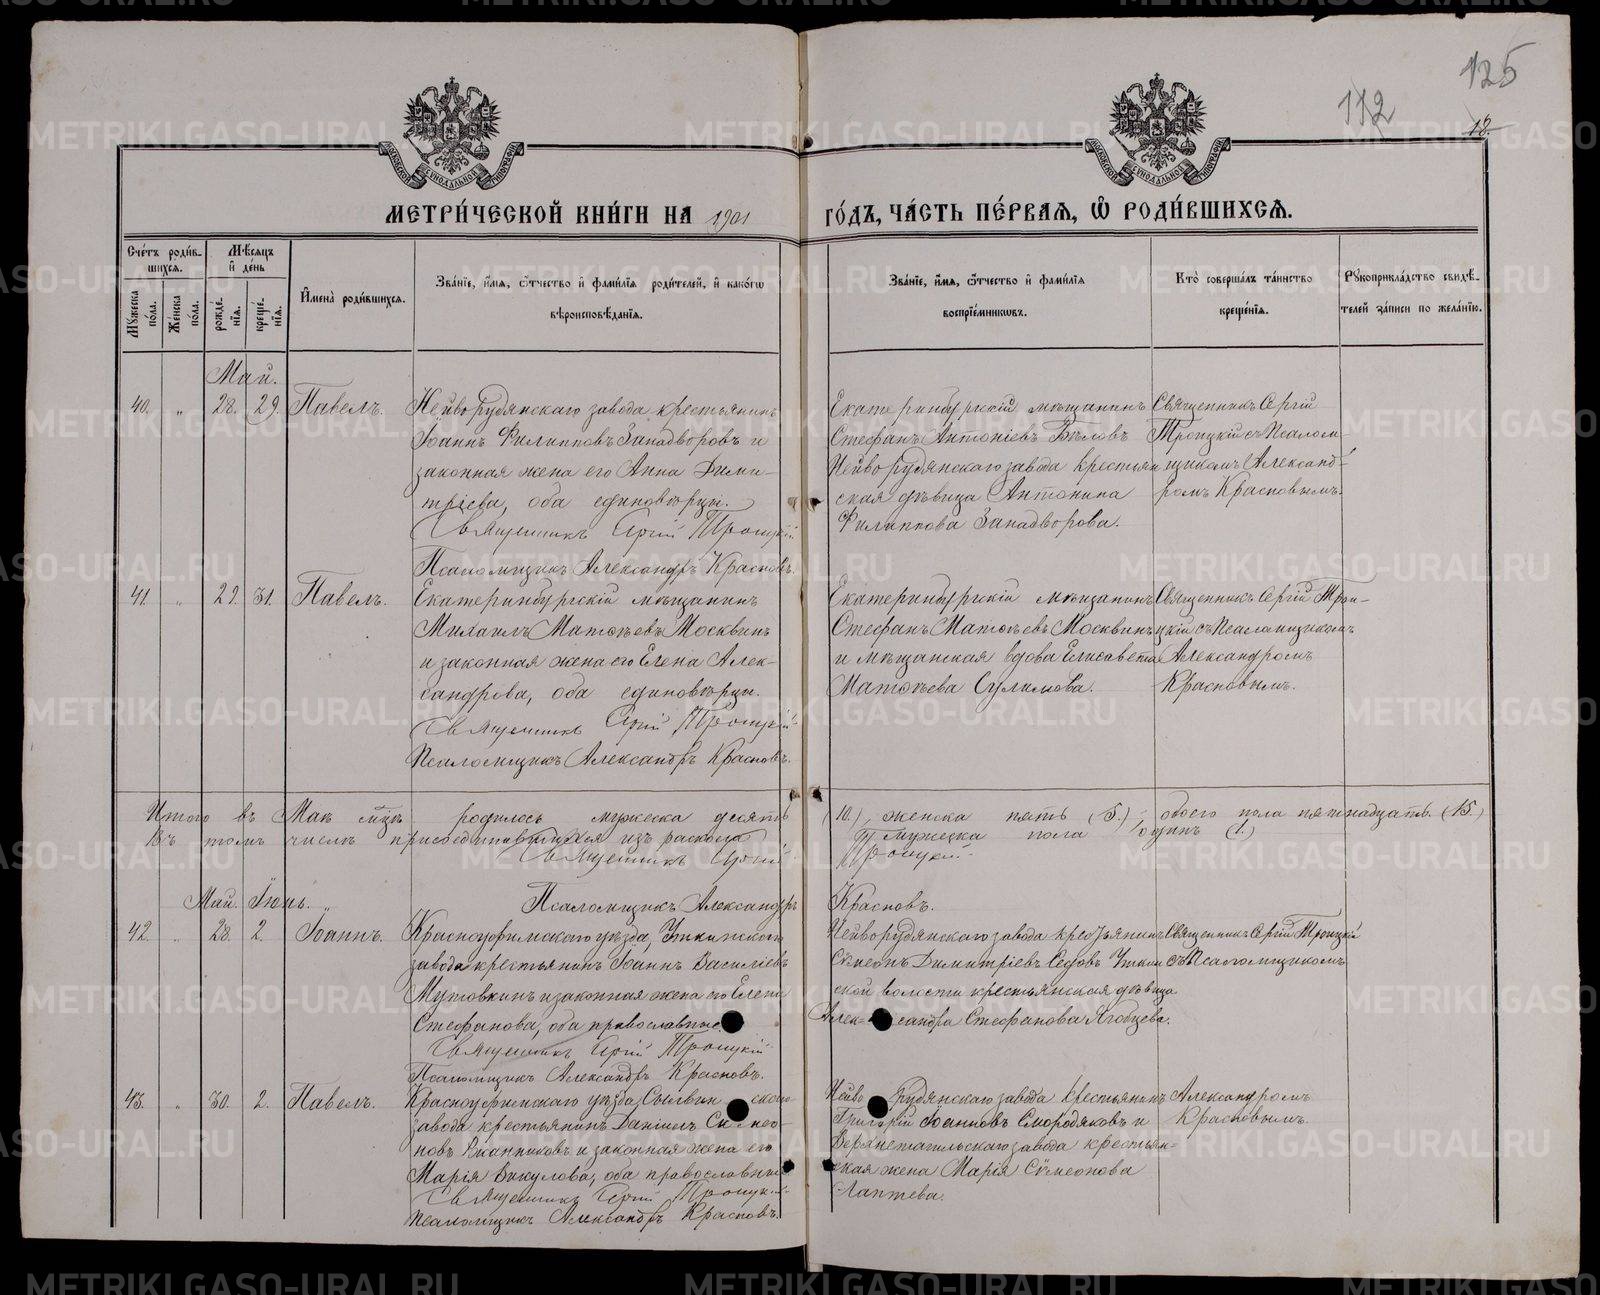 125
112
18.
МЕТРИ́ЧЕСКОЙ КНИ́ГИ НА 1901 ГО́ДЪ, ЧА́СТЬ ПЕ́РВАЯ, Ѽ РОДИ́ВШИХСЯ.
Сче́тъ роди́в-
шихся.
Му́жеска по́ла.
Же́нска по́ла.
Мѣ́сяцъ и де́нь
рожде́-
нія.
креще́-
нія.
И҆мена̀ роди́вшихся.
Зва́ніе, и҆́мя, ѻ҆́тчество и҆ фами́лія роди́телей, и҆ како́гѡ
вѣроисповѣ́данія.
Зва́ніе, и҆́мя, ѻ҆́тчество и҆ фами́лія
воспріе́мниковъ.
Кто̀ соверша́лъ та́инство
креще́нія.
Рꙋкоприкла́дство свидѣ́-
телей за́писи по жела́нію.
Май.
40. „ 28. 29. Павелъ.
Нейворудянскаго завода крестьянинъ
Іоаннъ Филипповъ Западворовъ и
законная жена его Анна Дими-
тріева, оба единовѣрцы.
Священникъ Сергій Троицкій
Псаломщикъ Александръ Красновъ.
Екатеринбургскій мѣщанинъ
Стефанъ Антоніевъ Бѣловъ
Нейворудянскаго завода крестьян
ская дѣвица Антонина
Филиппова Западворова.
Священникъ Сергій
Троицкій съ Псалом-
щикомъ Александ-
ромъ Красновымъ.
41. „ 29. 31. Павелъ.
Екатеринбургскій мѣщанинъ
Михаилъ Матвѣевъ Москвинъ
и законная жена его Елена Алек-
сандрова, оба единовѣрцы.
Священникъ Сергій Троицкій
Псаломщикъ Александръ Красновъ.
Екатеринбургскій мѣщанинъ
Стефанъ Матвѣевъ Москвинъ
и мѣщанская вдова Елисавета
Матвѣева Сулимова.
Священникъ Сергій Трои-
цкій съ Псаломщикомъ
Александромъ
Красновымъ.
Итого въ Маѣ родилось мужеска десять (10.), женска пять (5.); обоего пола пятнадцать. (15.)
Въ томъ числѣ присоединившихся изъ раскола мужеска пола одинъ (1.)
Священникъ Сергій Троицкій.
Май. Іюнь. „
Псаломщикъ Александръ Красновъ.
42. „ 28. 2. Іоаннъ.
Красноуфимскаго уѣзда, Уткинскаго
завода крестьянинъ Іоаннъ Василіевъ
Мутовкинъ и законная жена его Елена
Стефанова, оба православные
Священникъ Сергій Троицкій
Псаломщикъ Александръ Красновъ.
Нейворудянскаго завода крестьянинъ
Сѵмеонъ Димитріевъ Сѣдовъ Уткин
ской волости крестьянская дѣвица
Александра Стефанова Ягодцева.
Священникъ Сергій Троицкій
съ Псаломщикомъ
43. „ 30. 2. Павелъ.
Красноуфимскаго уѣзда, Сылвинскаго
завода крестьянинъ Даніилъ Сѵмео-
новъ и законная жена его
Марія Викулова, оба православные
Священникъ Сергій Троицкій
Псаломщикъ Александръ Красновъ.
Нейворудянскаго завода крестьянинъ
Григорій Іоанновъ Смородяковъ и
Верхнетагильскаго завода крестьян-
ская жена Марія Сѵмеонова
Лаптева.
Александромъ
Красновымъ.
METRIKI.GASO-URAL.RU